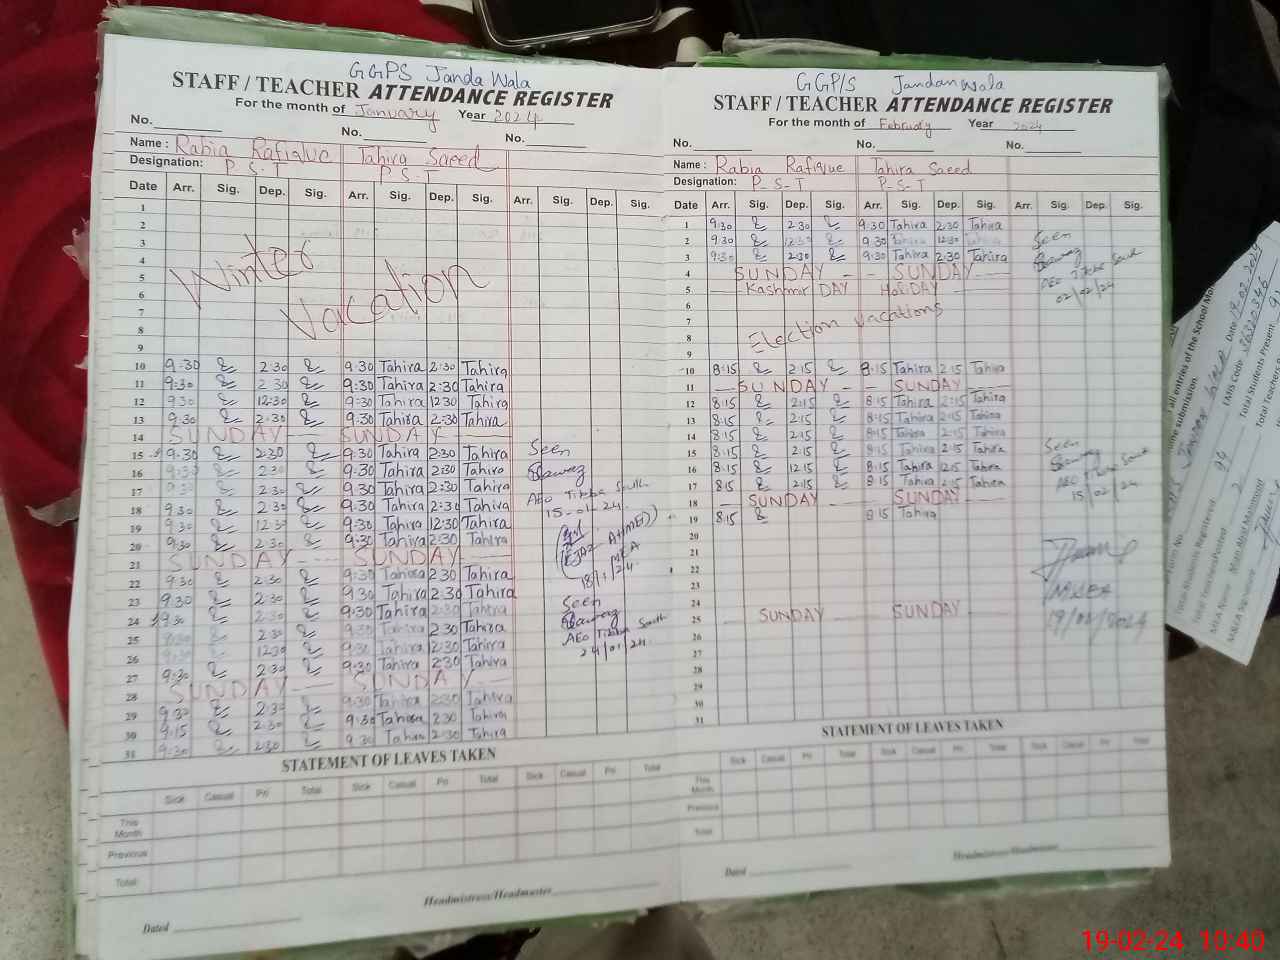 GGPS Janda Wala
STAFF / TEACHER ATTENDANCE REGISTER
For the month of January Year 2024
No. No. No.
Name : Rabia Rafique Tahira Saeed
Designation: P.S.T P.S.T
Date Arr. Sig. Dep. Sig. Arr. Sig. Dep. Sig. Arr. Sig. Dep. Sig.
1
2
3
4
5
6
7
8
9
Winter
Vacation
10 9:30 2:30 9:30 Tahira 2:30 Tahira
11 9:30 2:30 9:30 Tahira 2:30 Tahira
12 9:30 12:30 9:30 Tahira 12:30 Tahira
13 9:30 2:30 9:30 Tahira 2:30 Tahira
14 SUNDAY SUNDAY
15 9:30 2:30 9:30 Tahira 2:30 Tahira
16 9:30 2:30 9:30 Tahira 2:30 Tahira
17 9:30 2:30 9:30 Tahira 2:30 Tahira
18 9:30 2:30 9:30 Tahira 2:30 Tahira
19 9:30 12:30 9:30 Tahira 12:30 Tahira
20 9:30 2:30 9:30 Tahira 2:30 Tahira
21 SUNDAY SUNDAY
22 9:30 2:30 9:30 Tahira 2:30 Tahira
23 9:30 2:30 9:30 Tahira 2:30 Tahira
24 9:30 2:30 9:30 Tahira 2:30 Tahira
25 9:30 2:30 9:30 Tahira 2:30 Tahira
26 9:30 12:30 9:30 Tahira 12:30 Tahira
27 9:30 2:30 9:30 Tahira 2:30 Tahira
28 SUNDAY SUNDAY
29 9:30 2:30 9:30 Tahira 2:30 Tahira
30 9:15 2:30 9:30 Tahira 2:30 Tahira
31 9:30 2:30 9:30 Tahira 2:30 Tahira
Seen
AEO Tibba South
15-01-24
EJAZ AHMED
MEA
18/1/24
Seen
AEO Tibba South
24/01/24
STATEMENT OF LEAVES TAKEN
Sick Casual Pri Total Sick Casual Pri Total Sick Casual Pri Total
This Month
Previous
Total
Headmistress/Headmaster
Dated
GGP/S Jandanwala
STAFF / TEACHER ATTENDANCE REGISTER
For the month of February Year 2024
No. No. No.
Name : Rabia Rafique Tahira Saeed
Designation: P-S-T P-S-T
Date Arr. Sig. Dep. Sig. Arr. Sig. Dep. Sig. Arr. Sig. Dep. Sig.
1 9:30 2:30 9:30 Tahira 2:30 Tahira
2 9:30 12:30 9:30 Tahira 12:30 Tahira
3 9:30 2:30 9:30 Tahira 2:30 Tahira
4 SUNDAY SUNDAY
5 Kashmir DAY HOLIDAY
6
7
8
9
Election vacations
10 8:15 2:15 8:15 Tahira 2:15 Tahira
11 SUNDAY SUNDAY
12 8:15 2:15 8:15 Tahira 2:15 Tahira
13 8:15 2:15 8:15 Tahira 2:15 Tahira
14 8:15 2:15 8:15 Tahira 2:15 Tahira
15 8:15 2:15 8:15 Tahira 2:15 Tahira
16 8:15 12:15 8:15 Tahira 12:15 Tahira
17 8:15 2:15 8:15 Tahira 2:15 Tahira
18 SUNDAY SUNDAY
19 8:15 8:15 Tahira
20
21
22
23
24
25 SUNDAY SUNDAY
26
27
28
29
30
31
Seen
AEO Tibba South
02/02/24
Seen
AEO Tibba South
15/02/24
M&EA
19/02/2024
STATEMENT OF LEAVES TAKEN
Sick Casual Pri Total Sick Casual Pri Total Sick Casual Pri Total
This Month
Previous
Total
Headmistress/Headmaster
Dated
all entries of the School
submission.
Date 19.02.2024
EMIS Code: 36320346
Form No.
Total Students Registered 94
Total Students Present
Total Teachers Posted 2
Total Teachers
MEA Name
M&EA Signature
19-02-24 10:40